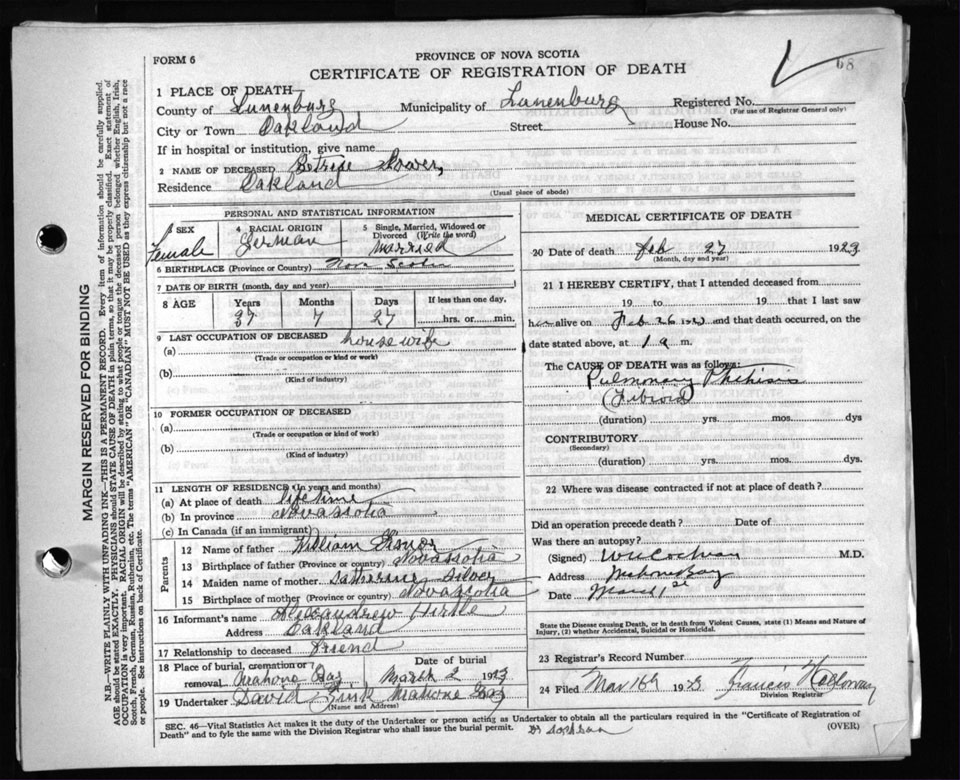 68
FORM 6
PROVINCE OF NOVA SCOTIA
CERTIFICATE OF REGISTRATION OF DEATH
1 PLACE OF DEATH
County of Lunenburg Municipality of Lunenburg Registered No.
(For use of Registrar General only)
City or Town Oakland Street House No.
If in hospital or institution, give name
2 NAME OF DECEASED
Residence Oakland
(Usual place of abode)
PERSONAL AND STATISTICAL INFORMATION
3 SEX 4 RACIAL ORIGIN 5 Single, Married, Widowed or Divorced (Write the word)
Female German Married
6 BIRTHPLACE (Province or Country) Nova Scotia
7 DATE OF BIRTH (month, day and year)
8 AGE Years Months Days If less than one day,
37 7 27 hrs. or min.
9 LAST OCCUPATION OF DECEASED house wife
(a)
(Trade or occupation or kind of work)
(b)
(Kind of industry)
10 FORMER OCCUPATION OF DECEASED
(a)
(Trade or occupation or kind of work)
(b)
(Kind of industry)
11 LENGTH OF RESIDENCE (In years and months)
(a) At place of death lifetime
(b) In province Novascotia
(c) In Canada (if an immigrant)
Parents
12 Name of father William
13 Birthplace of father (Province or country) Novascotia
14 Maiden name of mother Silver
15 Birthplace of mother (Province or country) Novascotia
16 Informant's name Hirtle
Address Oakland
17 Relationship to deceased Friend
18 Place of burial, cremation or removal Mahone Bay Date of burial March 2 1923
19 Undertaker David Zink Mahone Bay
(Name and Address)
MEDICAL CERTIFICATE OF DEATH
20 Date of death Feb 27 1923
(Month, day and year)
21 I HEREBY CERTIFY, that I attended deceased from
19 to 19 that I last saw
her alive on Feb 26 and that death occurred, on the
date stated above, at 1 a m.
The CAUSE OF DEATH was as follows:
Pulmonary Phthisis
(Fibroid)
(duration) yrs. mos. dys
CONTRIBUTORY
(Secondary)
(duration) yrs. mos. dys.
22 Where was disease contracted if not at place of death?
Did an operation precede death? Date of
Was there an autopsy?
(Signed) Cochran M.D.
Address Mahone Bay
Date March 1st
State the Disease causing Death, or in death from Violent Causes, state (1) Means and Nature of Injury, (2) whether Accidental, Suicidal or Homicidal.
23 Registrar's Record Number
24 Filed Mar 16th 1923 Francis
Division Registrar
SEC. 46—Vital Statistics Act makes it the duty of the Undertaker or person acting as Undertaker to obtain all the particulars required in the "Certificate of Registration of
Death" and to fyle the same with the Division Registrar who shall issue the burial permit. (OVER)
MARGIN RESERVED FOR BINDING
N.B.—WRITE PLAINLY WITH UNFADING INK—THIS IS A PERMANENT RECORD. Every item of information should be carefully supplied.
AGE should be stated EXACTLY. PHYSICIANS should STATE CAUSE OF DEATH in plain terms, so that it may be properly classified. Exact statement of
OCCUPATION is very important. RACIAL ORIGIN will be described by stating to what people or tongue the deceased person belonged whether English, Irish,
Scotch, French, German, Russian, Ruthenian, etc. The terms "AMERICAN" OR "CANADIAN" MUST NOT BE USED as they express citizenship but not a race
or people. See instructions on back of Certificate.